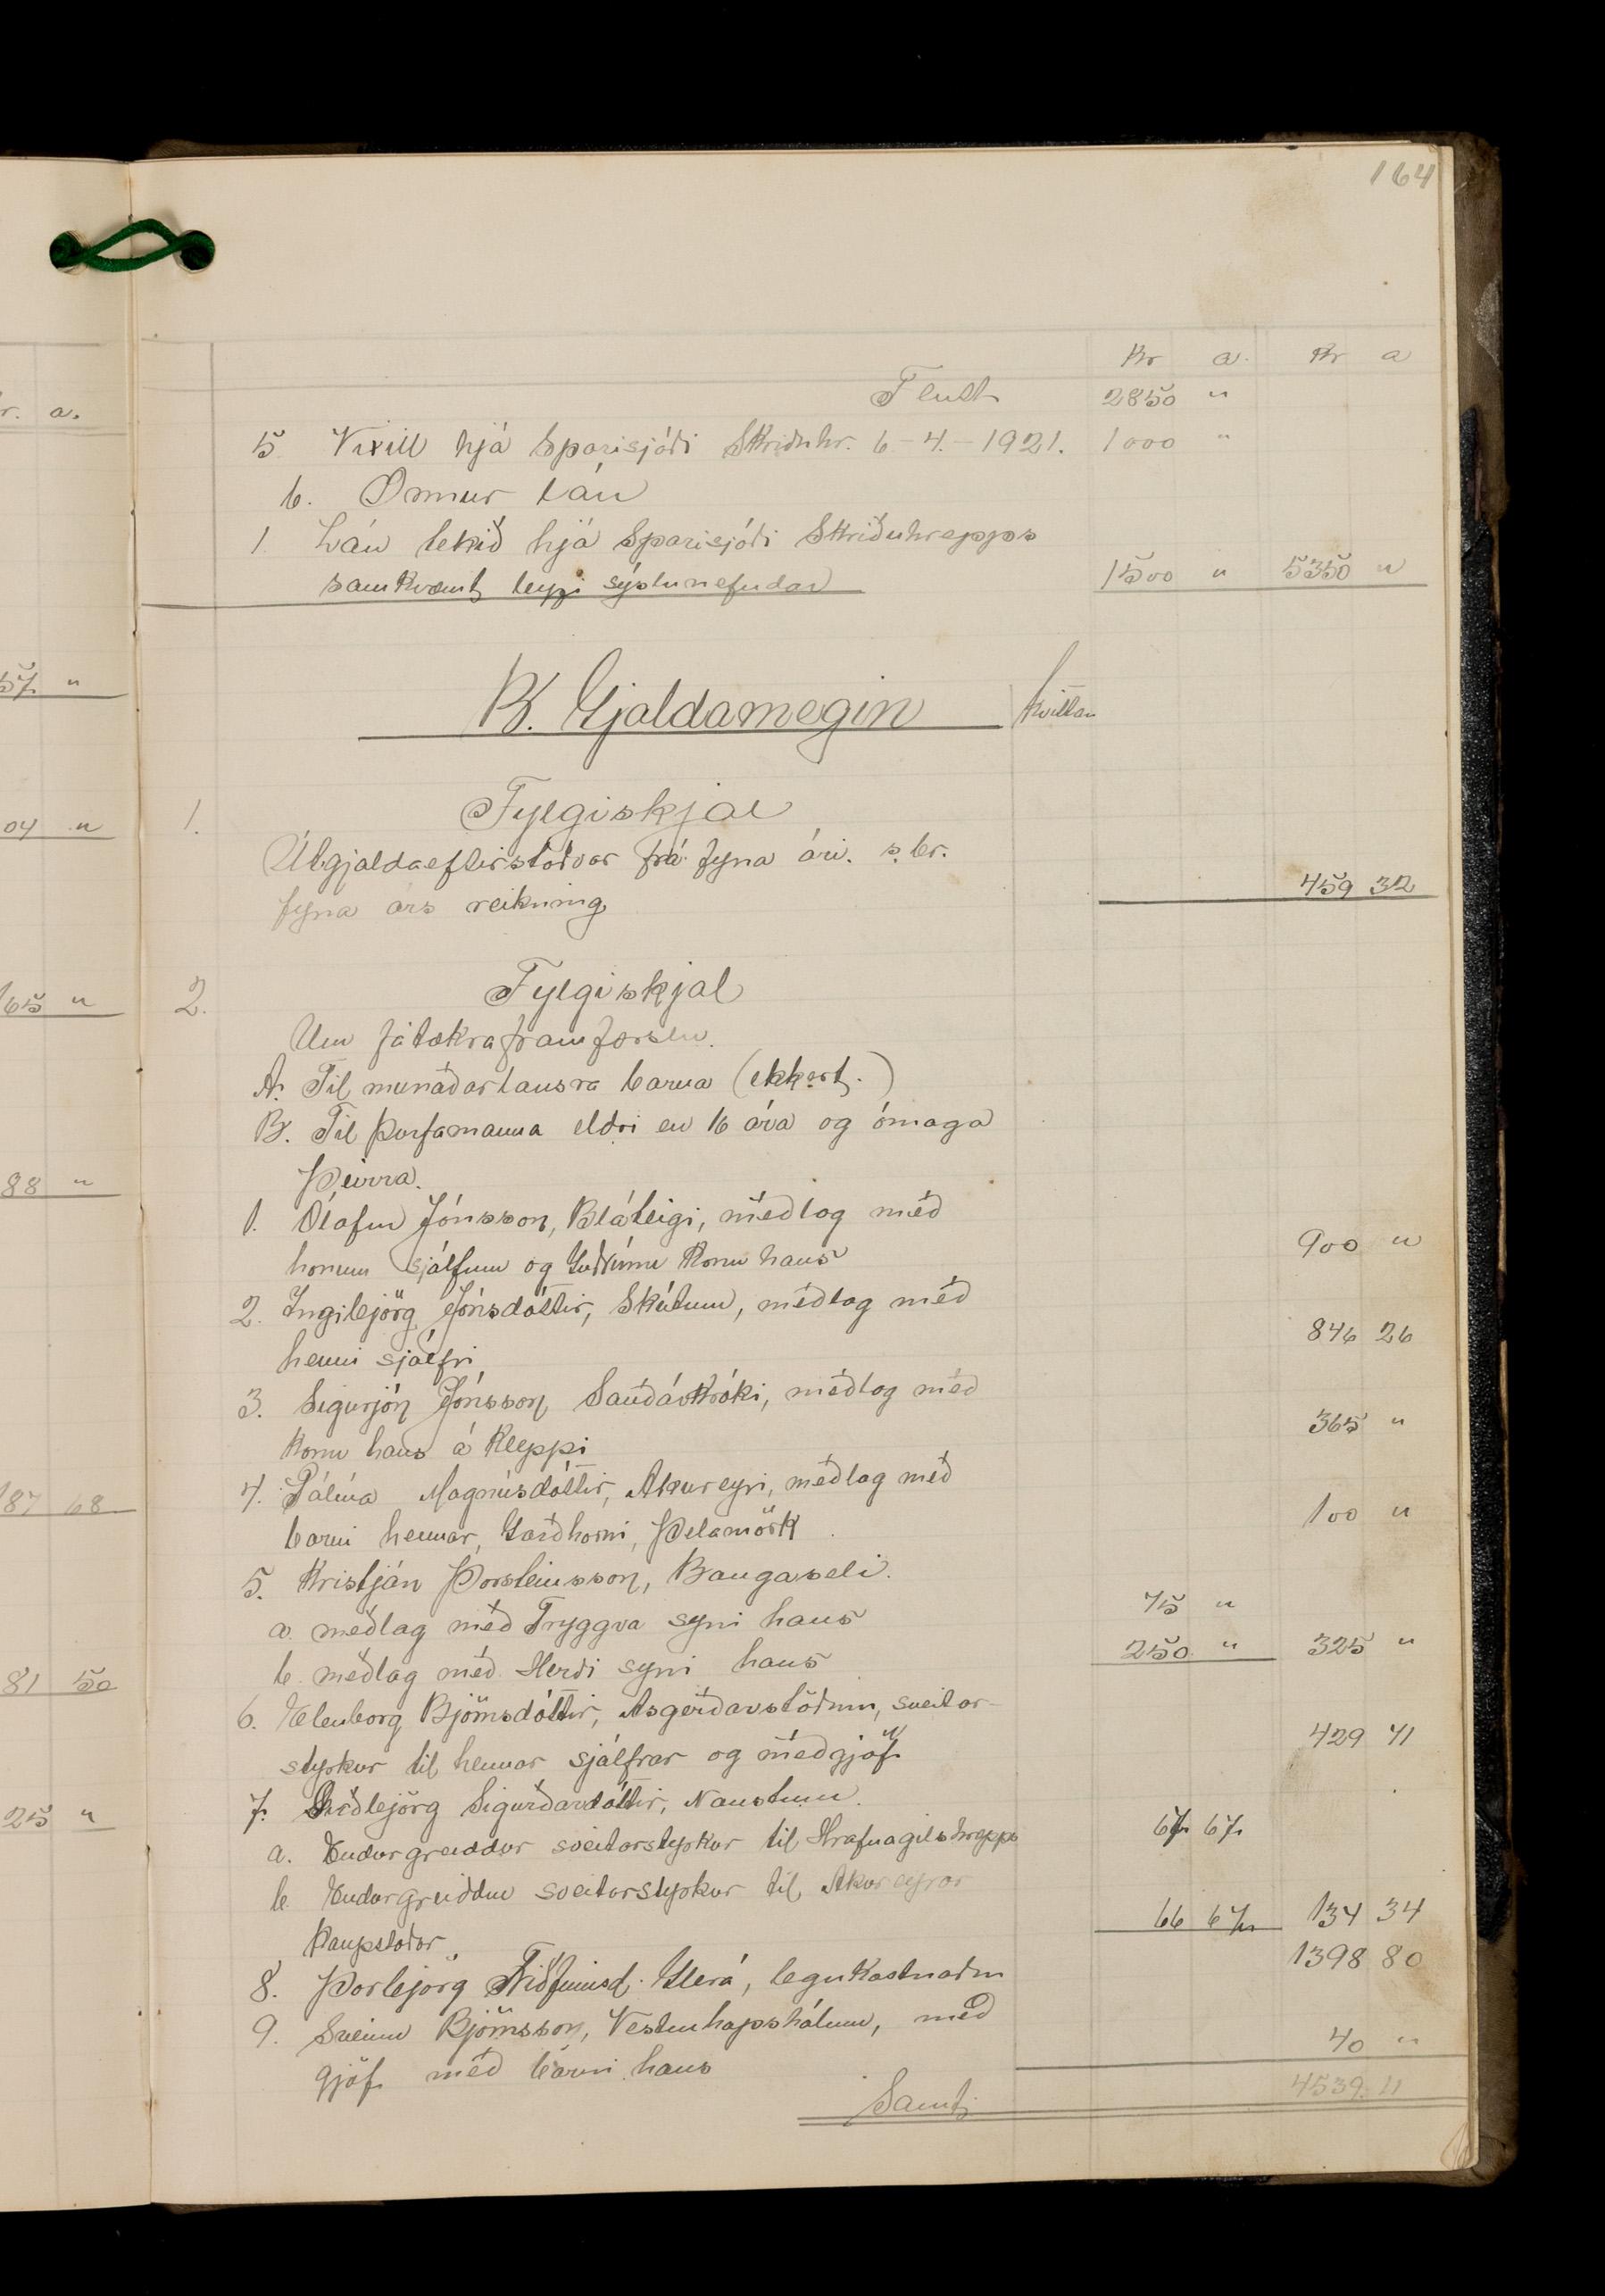 164
Kr a. Kr a
Flutt 2850 "
5 Vixill hjá Sparisjóði Skriðuhr. 6-4.-1921. 1000 "
b. Önnur lán
1 Lán tekið hjá Sparisjóði Skriðuhrepps
samkvæmt leyfi sýslunefndar 1500 " 5350 "
B. Gjaldamegin Kvittan
1. Fylgiskjal
Útgjaldaeftirstöðvar frá fyrra ári. s.br.
fyrra árs reikning 459 32
2. Fylgiskjal
Um fátækraframfærslu.
A. Til munaðarlausra barna (ekkert.)
B. Til þurfamanna eldri en 16 ára og ómaga
þeirra.
1. Ólafur Jónsson, Bláteigi, meðlag með
honum sjálfum og Guðrúnu konu hans 900 "
2. Ingibjörg Jónsdóttir, Skútum, meðlag með
henni sjálfri 846 26
3. Sigurjón Jónsson Sauðárkróki, meðlag með
konu hans á Kleppi 365 "
4. Pálína Magnúsdóttir, Akureyri, meðlag með
barni hennar, Garðhorni, Þelamörk 100 "
5. Kristján Þorsteinsson, Baugaseli.
a. meðlag með Tryggva syni hans 75 "
b. meðlag með Herði syni hans 250 " 325 "
6. Elenborg Björnsdóttir, Ásgerðarstöðum, sveitar-
styrkur til hennar sjálfrar og meðgjöf 429 71
7. Guðbjörg Sigurðardóttir, Naustum.
a. Endurgreiddur sveitarstyrkur til Hrafnagilshrepps 67 67
b. Endurgreiddur sveitarstyrkur til Akureyrar
kaupstaðar 66 67 134 34
8. Þorbjörg Friðfinnsd. Glerá, legukostnaður 1398 80
9. Sveinn Björnsson, Vesturhópshólum, með
gjöf með barni hans 40 "
Samt. 4539 11
r. a.
57 "
04 "
165 "
88 "
187 68
81 50
25 "